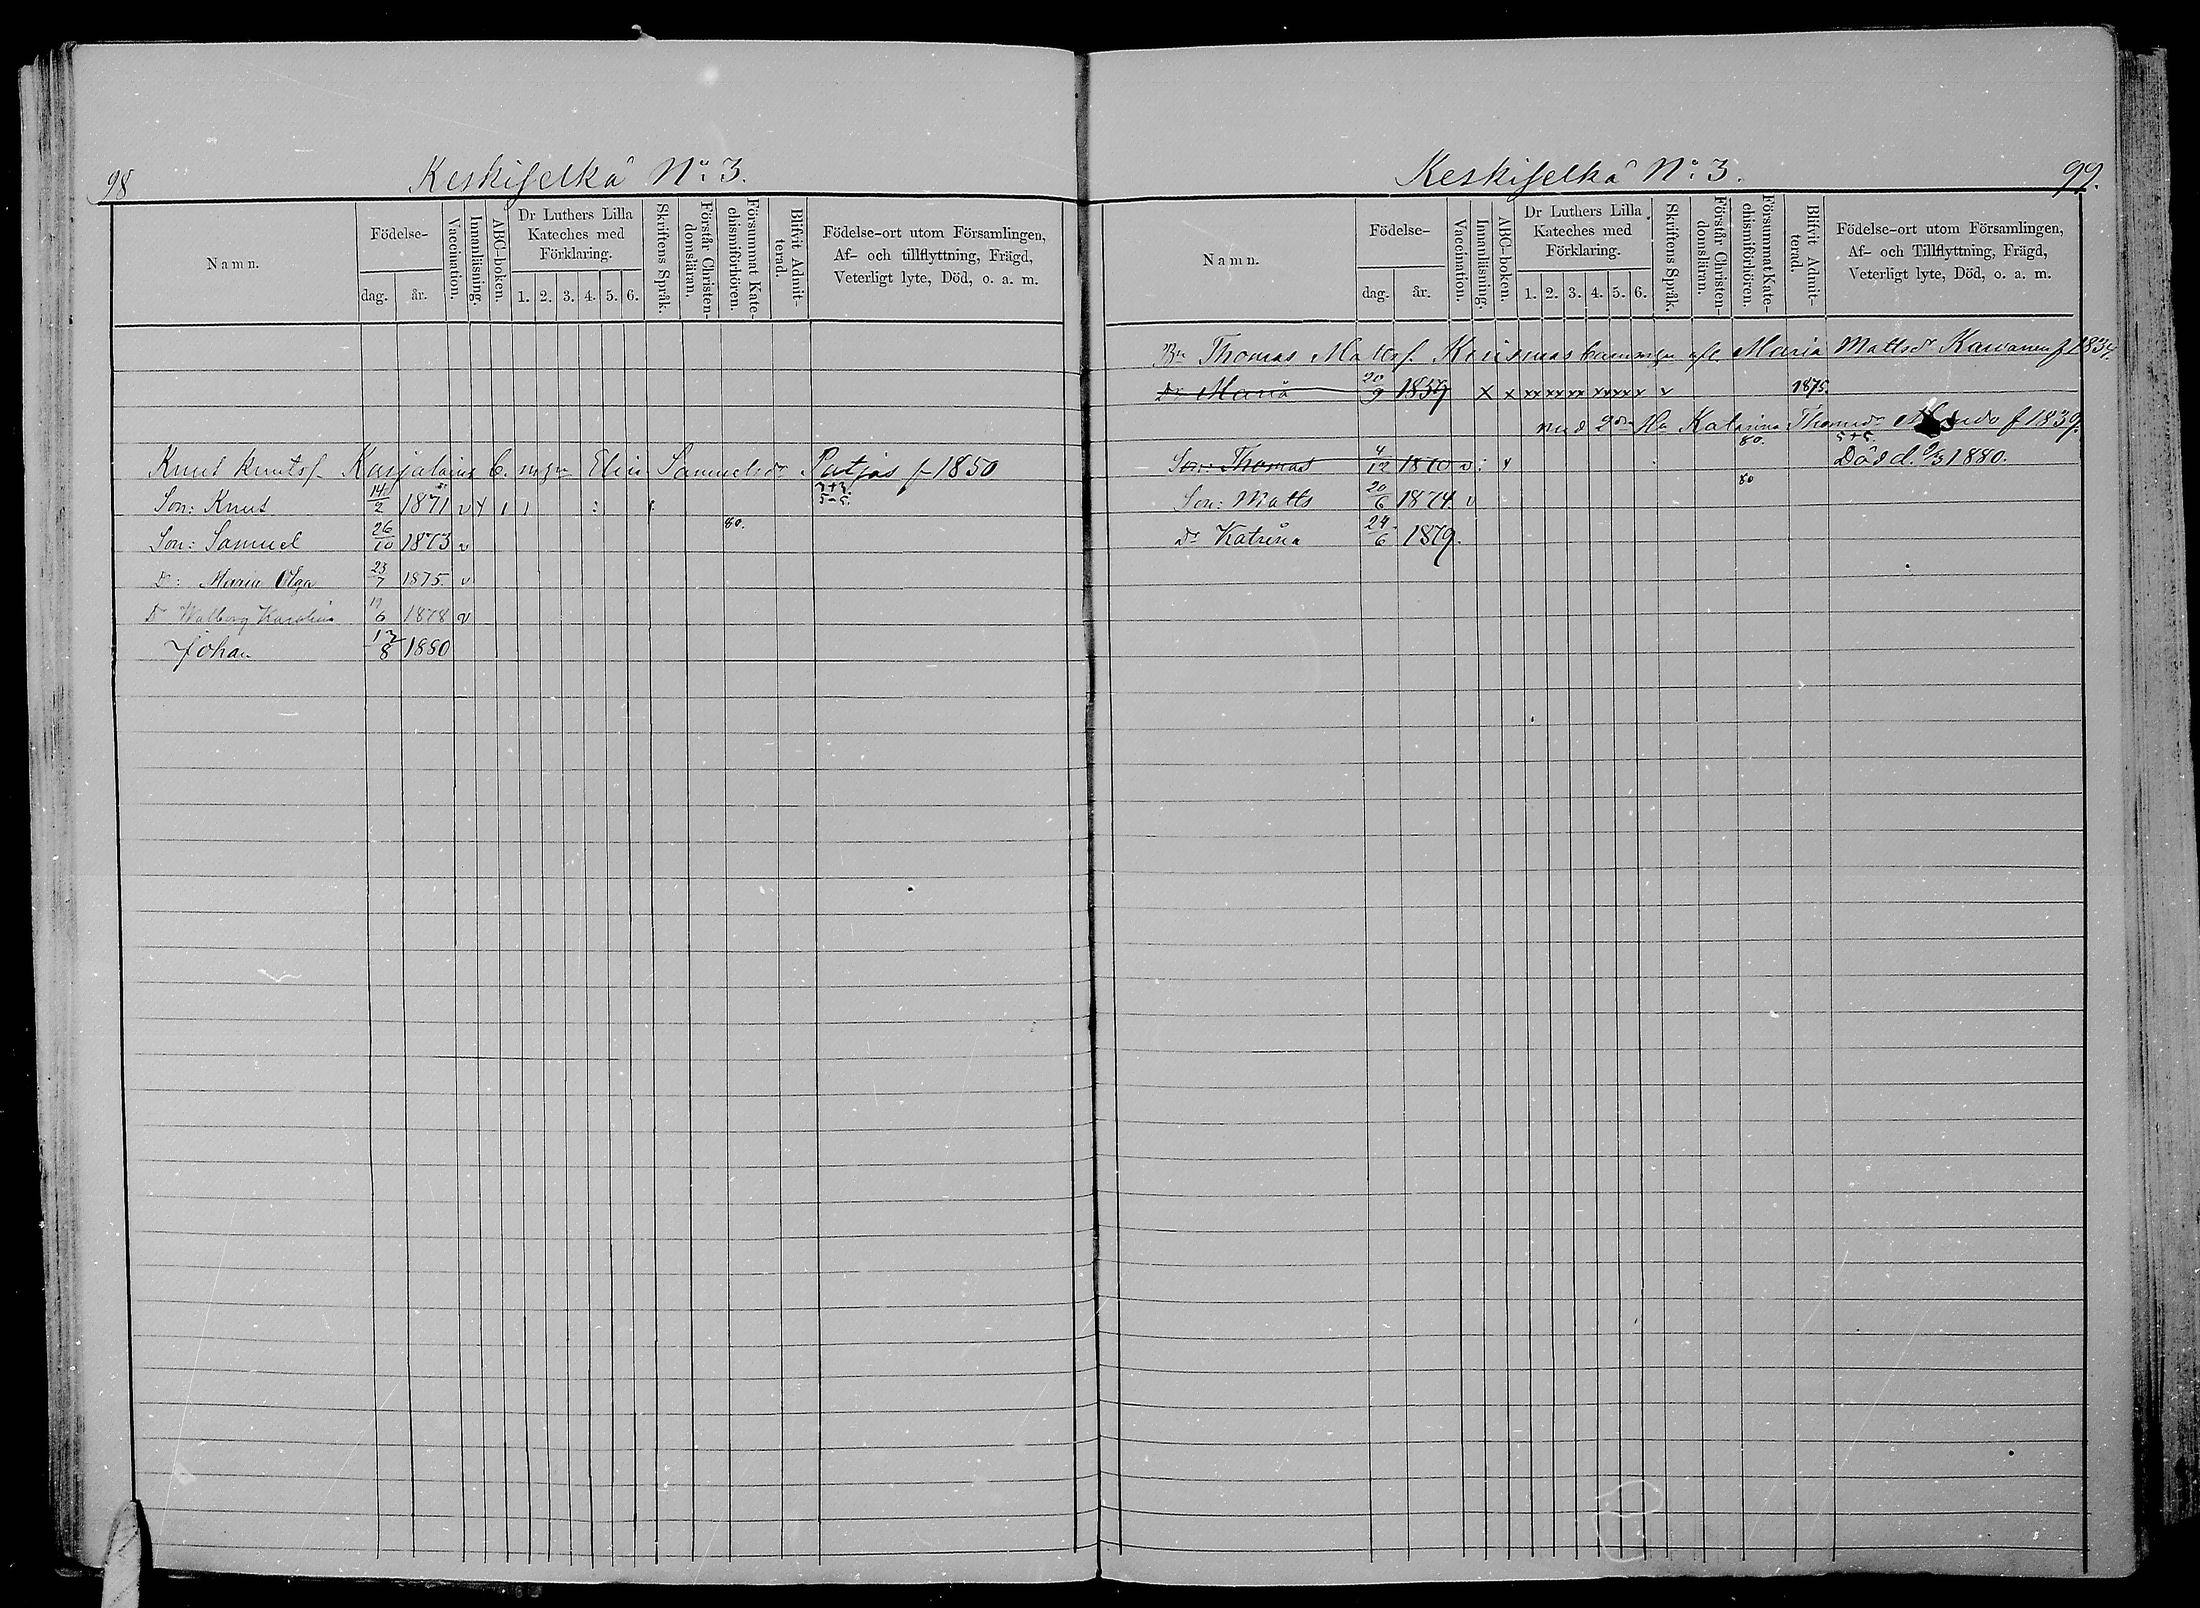 98
Keskiselkä N:o 3.
Namn.
Födelse-
dag.
år.
Vaccination.
Innanläsning.
ABC-boken.
Dr Luthers Lilla
Kateches med
Förklaring.
1. 2. 3. 4. 5. 6.
Skriftens Språk.
Förstår Christen-
domsläran.
Försummat Kate-
chismiförhören.
Blifvit Admit-
terad.
Födelse-ort utom Församlingen,
Af- och tillflyttning, Frägd,
Veterligt lyte, Död, o. a. m.
Knut Knutss. Karjalainen C. Elin Samuelsdr f 1850
Son: Knut 14/2 1871 v
Son: Samuel 26/10 1873 v 80.
D: Maria Olga 23/7 1875 v
Dr Walborg Karolina 19/6 1878 v
Johan 1880
Keskiselkä N:o 3.
99.
Namn.
Födelse-
dag.
år.
Vaccination.
Innanläsning.
ABC-boken.
Dr Luthers Lilla
Kateches med
Förklaring.
1. 2. 3. 4. 5. 6.
Skriftens Språk.
Förstår Christen-
domsläran.
Försummat Kate-
chismiförhören.
Blifvit Admit-
terad.
Födelse-ort utom Församlingen,
Af- och Tillflyttning, Frägd,
Veterligt lyte, Död, o. a. m.
Thomas Matts. Maria Mattsdr
Dr Maria 20/9 1859 x x xx xx xx xx xx x v 1875.
med 2dra Hu Katrina Thomasdr f 1839.
Son: Thomas 4/12 1870 v 80. Död d. 1880.
Son: Matts 20/6 1874. v 80
dr Katrina 24/6 1879.